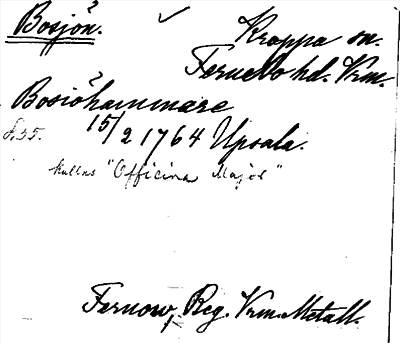 Bosjön.
Kroppa sn.
Fernebo hd. Vrm.
Bosiöhammare
s. 55. 15/2 1764 Upsala.
kallas "Officina Major"
Fernow, Reg. Vrm. Metall.